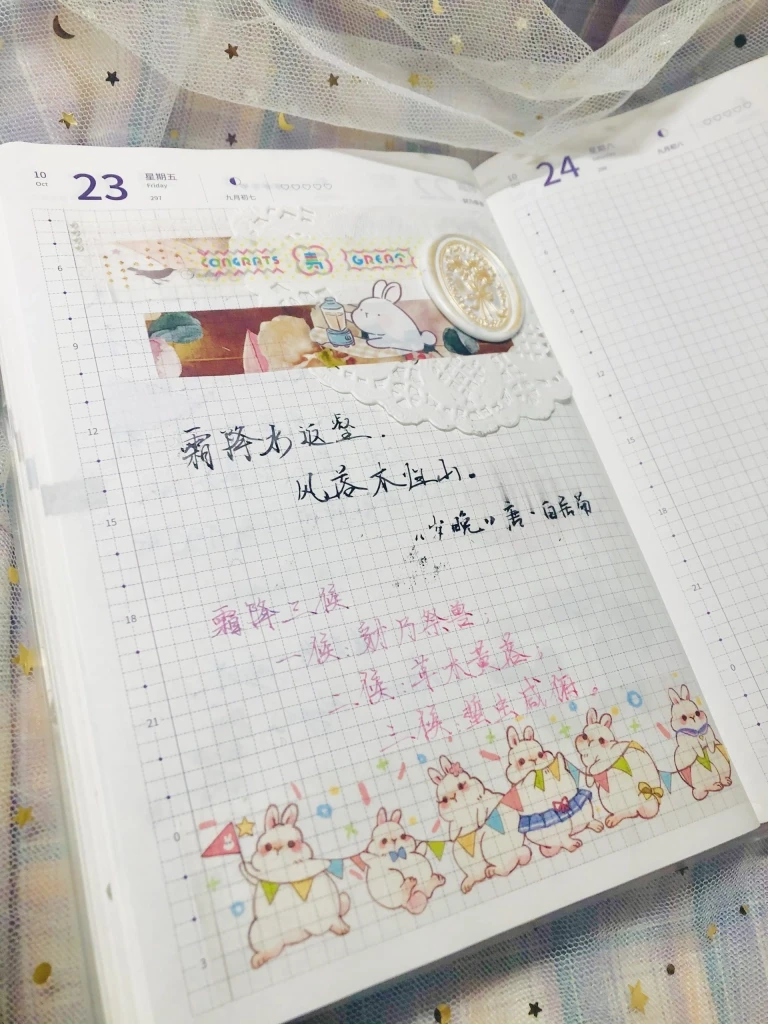 10
Oct
23
星期五
Friday
297
九月初七
10
24
星期六
九月初八
CONGRATS
GREAT
6
9
12
15
18
21
0
3
12
15
18
21
0
霜降水返壑.
风落木归山。
《岁晚》唐·白居易
霜降三候
一候:豺乃祭兽;
二候:草木黄落;
三候:蛰虫咸俯。